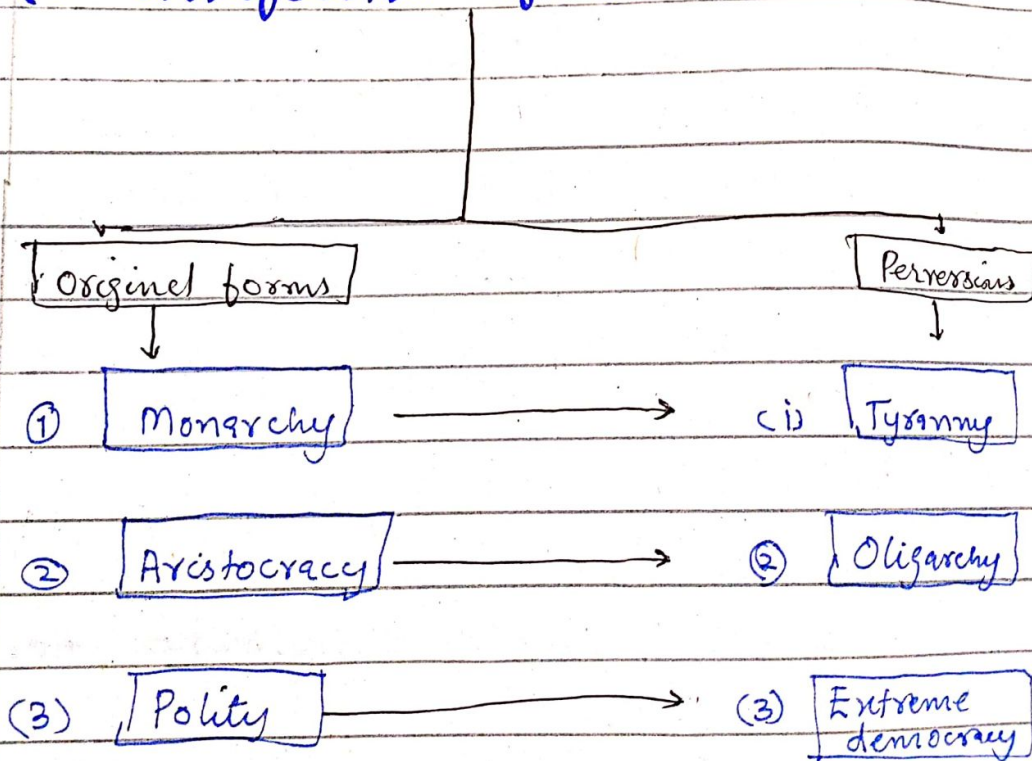 Original forms
Perversions
① Monarchy (i) Tyranny
② Aristocracy ② Oligarchy
(3) Polity (3) Extreme
democracy